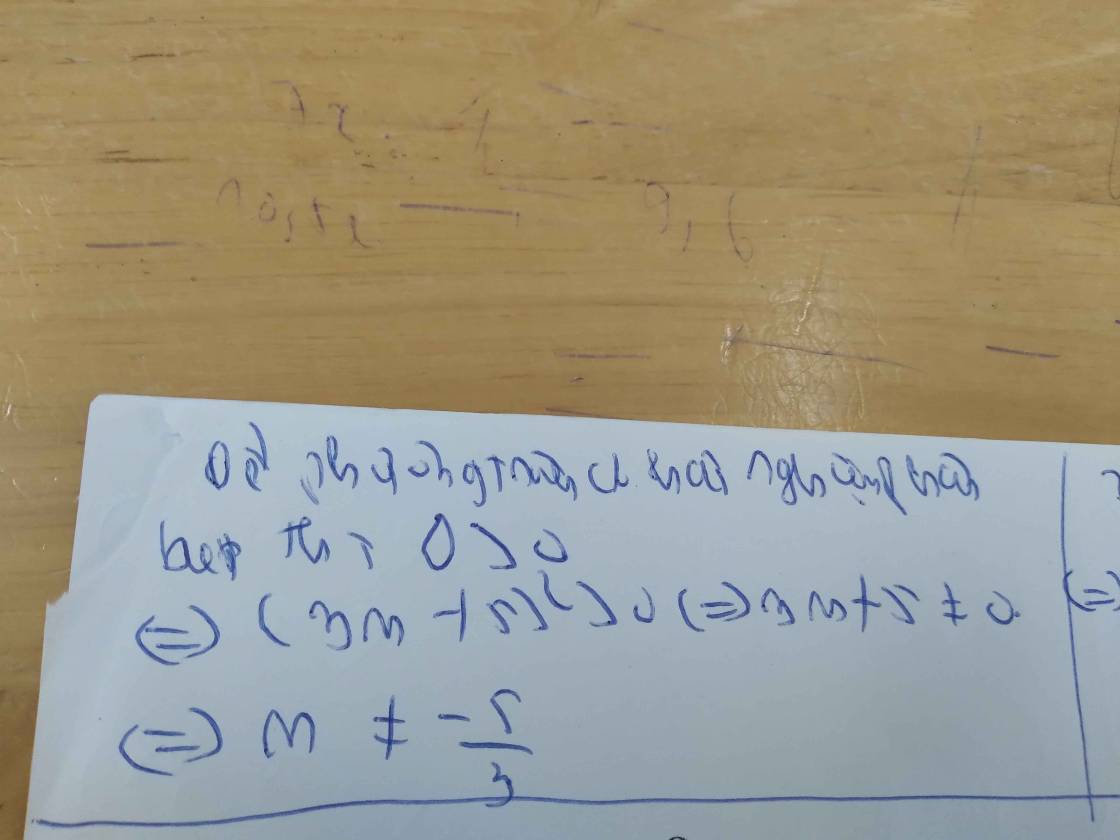 7x
9,6
Để phương trình có hai nghiệm phân
biệt thì Δ > 0
(=) (3m + 5)² > 0 (=) 3m + 5 ≠ 0
(=) m ≠ -5/3
(=)